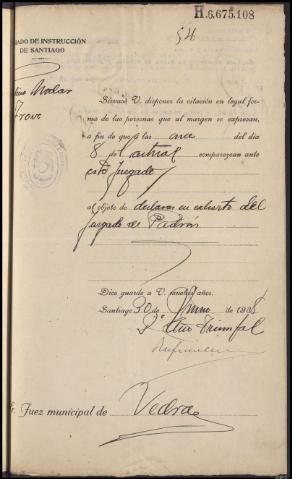 H.6,675.108
54
ADO DE INSTRUCCIÓN
DE SANTIAGO
Sírvase V. disponer la citación en legal for-
ma de las personas que al margen se expresan,
a fin de que a las once del día
8 del actual comparezcan ante
este Juzgado
al objeto de declarar en exhorto del
Juzgado de Padrón
Dios guarde a V. muchos años.
Santiago 30 de Junio de 1938
2º Año Triunfal
Sr. Juez municipal de Vedra